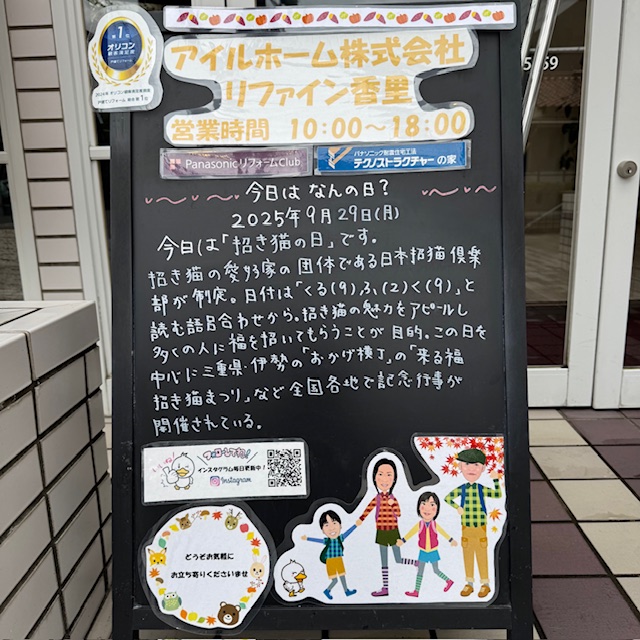 第1位
オリコン
顧客満足度
アイルホーム株式会社
リファイン香里
営業時間 10:00～18:00
Panasonic リフォームClub
パナソニック耐震住宅工法
テクノストラクチャーの家
今日は なんの日？
2025年9月29日(月)
今日は「招き猫の日」です。
招き猫の愛好家の団体である日本招猫倶楽
部が制定。日付は「くる(9)、ふ、(2)く(9)」と
読む語呂合わせから。招き猫の魅力をアピールし
多くの人に福を招いてもらうことが目的。この日を
中心に三重県・伊勢の「おかげ横丁」の「来る福
招き猫まつり」など全国各地で記念行事が
開催されている。
インスタグラム毎日更新中！
Instagram
どうぞお気軽に
お立ち寄りくださいませ